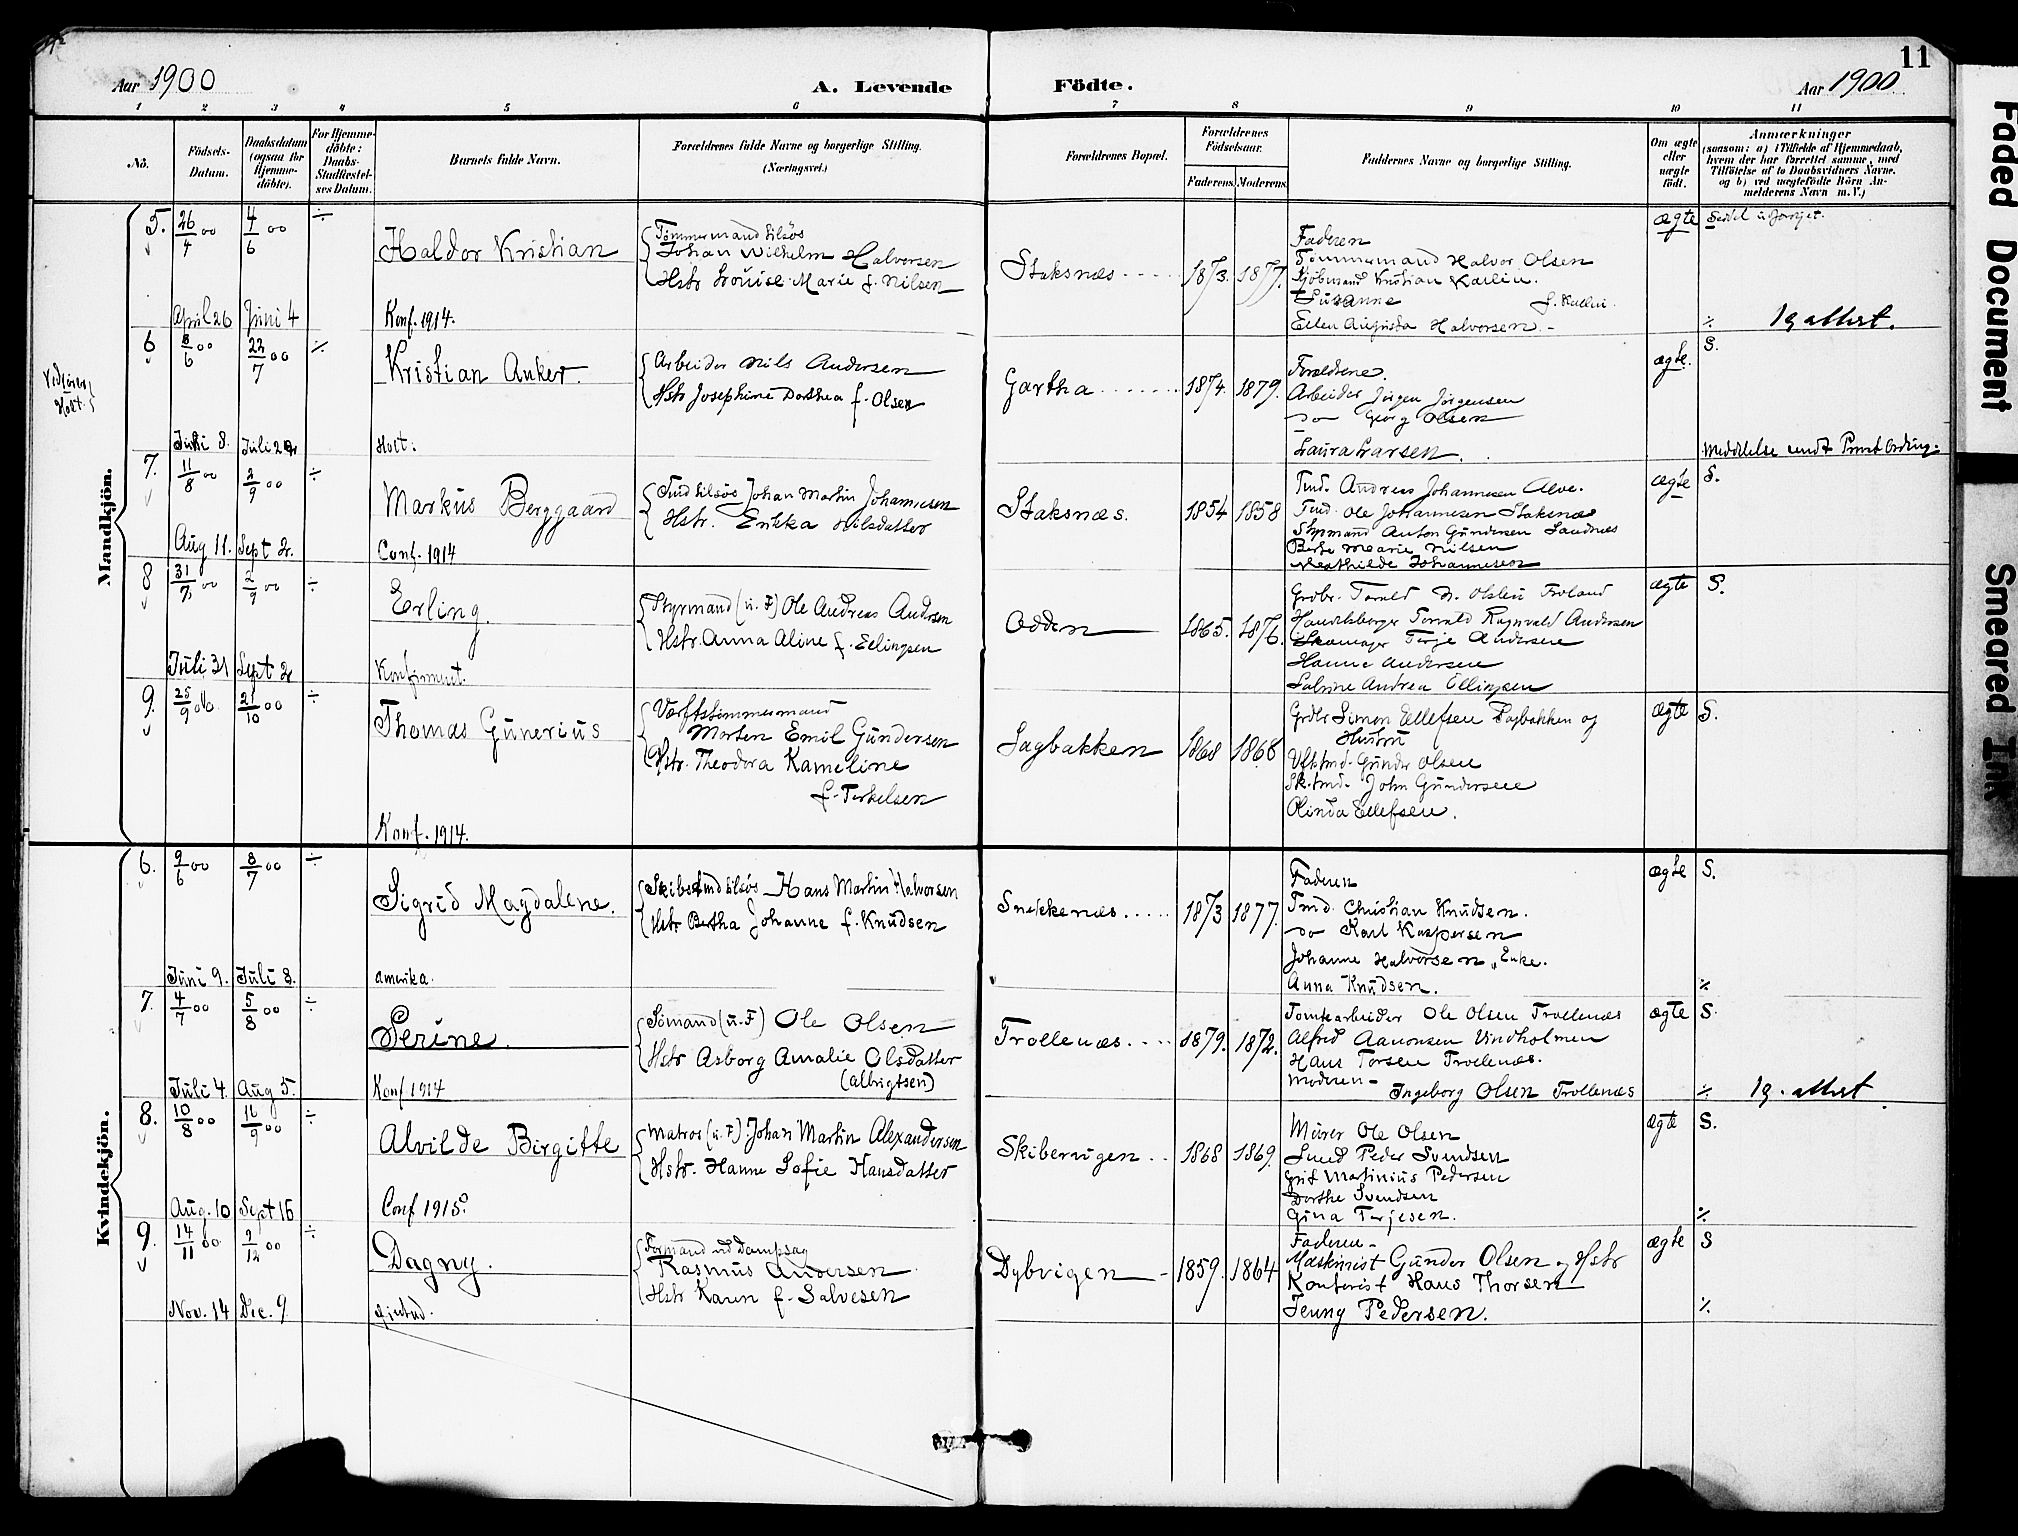 Aar 1900
A. Levende
Födte.
Aar 1900
11
1 2 3 4 5 6 7 8 9 10 11
Nö.
Födsels-Datum.
Daabsdatum (ogsaa for Hjemme-döbte).
For Hjemme-döbte: Daabs-Stadfæstel-ses Datum.
Barnets fulde Navn.
Forældrenes fulde Navne og borgerlige Stilling. (Næringsvei.)
Forældrenes Bopæl.
Forældrenes Födselsaar.
Faderens Moderens
Faddernes Navne og borgerlige Stilling.
Om ægte eller uægte födt.
Anmærkninger
(saasom: a) i Tilfælde af Hjemmedaab,
hvem der har forrettet samme, med
Tilföielse af to Daabsvidners Navne.
og b) ved uægtefödte Börn An-
melderens Navn m. V.)
Mandkjön.
5. 26/4 00 4/6 00 ÷
Haldor Kristian
Tömmermand tilsøs
Johan Wilhelm Halvorsen
Hstr Lovise Marie f. Nilsen
Staksnæs 1873. 1877.
Faderen
Tömmermand Halvor Olsen
Kjöbmand Kristian Kallin.
Susanne f. Kallin.
Ellen Augusta Halvorsen.
ægte
April 26 Juni 4
Konf. 1914.
÷ 19 attest.
Holt.
6 8/6 00 22/7 00 ÷
Kristian Anker.
Arbeider Nils Andersen
Hstr Josephine Dorthea f. Olsen
Gartha 1874. 1879.
Forældrene.
Arbeider Jörgen Jörgensen
do Georg Olsen
Laura Larsen.
ægte. S.
Juni 8. Juli 22
Holt.
7. 11/8 00 2/9 00 ÷
Markus Berggaard
Tmd tilsøs Johan Martin Johannesen
Hstr. Erikka Nilsdatter
Staksnæs. 1854 1858
Tmd. Andreas Johannesen Alve.
Tmd. Ole Johannesen Staksnæs
Styrmand Anton Gundersen Sandnæs
Berte Marie Nilsen
Mathilde Johannesen
ægte S.
Aug 11. Sept 2.
Conf. 1914
8 31/7 00 2/9 00 ÷
Erling.
Styrmand (u. F) Ole Andreas Andersen
Hstr. Anna Aline f. Ellingsen
Odden 1865. 1876.
Handelsborger Torvald Ragnvald Andersen
Skomager Terje Andersen
Hanne Andersen
Sabine Andrea Ellingsen
ægte S.
Juli 31 Sept 2
9. 25/9 00 21/10 00 ÷
Thomas Gunerius
Værftstömmermand
Morten Emil Gundersen
Hstr. Theodora Kameline
f. Terkelsen
Sagbakken 1868 1868
Grdbr Simon Ellefsen Sagbakken og
Hustru
Vftstmd. Gunder Olsen
Sk.tmd. John Gundersen
Olinda Ellefsen.
ægte S.
Konf. 1914.
Kvindekjön.
6. 9/6 00 8/7 00 ÷
Sigrid Magdalene.
Skibstmd tilsøs Hans Martin Halvorsen
Hstr Bertha Johanne f. Knudsen
Snekkenæs 1873 1877.
Faderen
Tmd. Christian Knudsen.
do Karl Kaspersen
Johanne Halvorsen, Enke.
Anna Knudsen.
ægte S.
Juni 9. Juli 8.
Amerika.
÷
7. 4/7 00 5/8 00 ÷
Serine.
Sömand (u. F) Ole Olsen
Hstr Asborg Amalie Olsdatter
(Albrigtsen)
Trollenæs 1879. 1872.
Tomtearbeider Ole Olsen Trollenæs
Alfred Aanonsen Vindholmen
Hans Torsen Trollenæs.
Moderen
Ingeborg Olsen Trollenæs
ægte S.
Juli 4. Aug 5.
Konf 1914
÷ 19. attest
8. 10/8 00 16/9 00 ÷
Alvilde Birgitte
Matros (u. F) Johan Martin Alexandersen
Hstr. Hanne Sofie Hansdatter
Skibervigen 1868 1869.
Murer Ole Olsen
Smed Peder Svendsen
Martinius Pedersen
Dorthe Svendsen
Gina Terjesen.
ægte S.
Aug. 10 Sept 16
Conf 1915.
÷
9. 14/11 00 9/12 00 ÷
Dagny.
Formand ved Dampsag
Rasmus Andersen
Hstr Karen f. Salvesen
Dybvigen 1859. 1864
Faderen
Maskinist Gunder Olsen og Hstr
Kontorist Hans Thorsen
Jenny Pedersen.
ægte S
Nov. 14 Dec. 9
÷
Faded Document
Smeared Ink